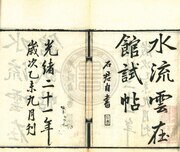 水流雲在
館試帖
石君自書
光緒二十一年
歲次乙未九月刊